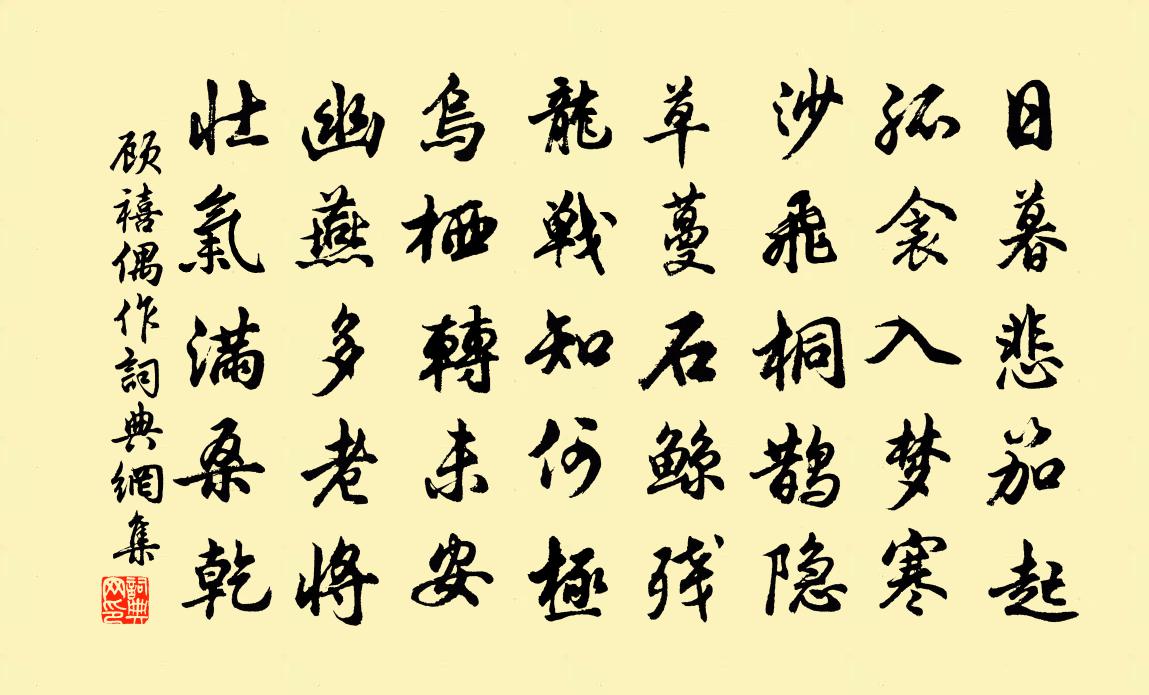 日暮悲笳起
孤衾入梦寒
沙飛桐鹊隐
草蔓石鲸残
龍戦知何極
烏栖轉未安
幽燕多老将
壮氣满桑乾
顾禧偶作詞典網集
詞典網印